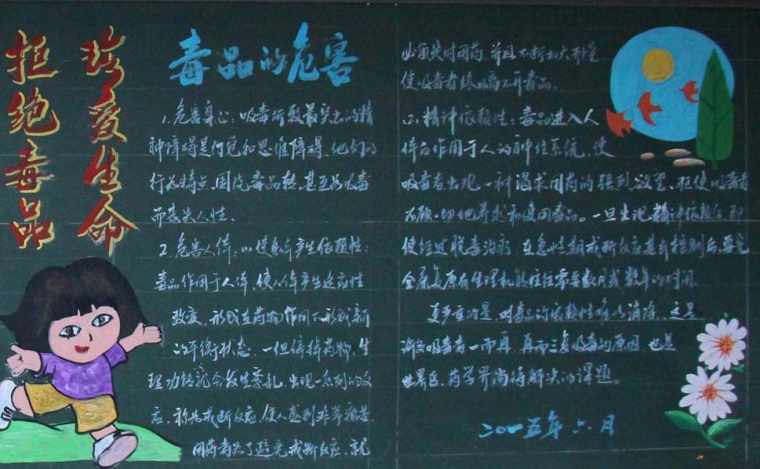 珍爱生命
拒绝毒品
毒品的危害
1.危害身心：吸毒所致最突出的精
神障碍是幻觉和思维障碍。他们的
行为特点围绕毒品转，甚至为吸毒
而丧失人性。
2.危害人体：(1)使身体产生依赖性：
毒品作用于人体，使人体产生适应性
改变，形成在药物作用下的新
的平衡状态。一但停掉药物，生
理功能就会发生紊乱，出现一系列的反
应，称为戒断反应，使人感到非常痛苦。
用药者为了避免戒断反应，就
必须定时用药，并且不断加大剂量，
使吸毒者终日离不开毒品。
(2)精神依赖性：毒品进入人
体后作用于人的神经系统，使
吸毒者出现一种渴求用药的强烈欲望，驱使吸毒者
不顾一切地寻求和使用毒品。一旦出现精神依赖后，即
使经过脱毒治疗，在急性期戒断反应基本控制后，要完
全康复原有生理机能往往需要数月或数年的时间。
更严重的是，对毒品的依赖性难以消除。这是
许多吸毒者一而再、再而三复吸毒的原因，也是
世界医、药学界尚待解决的课题。
二〇一五年六月